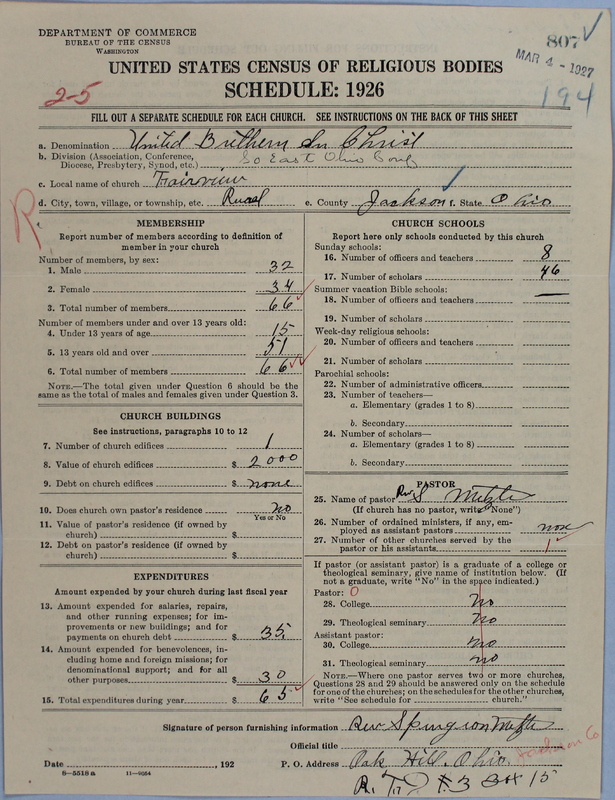 DEPARTMENT OF COMMERCE
BUREAU OF THE CENSUS
WASHINGTON
807
MAR 4 - 1927
194
2-5
UNITED STATES CENSUS OF RELIGIOUS BODIES
SCHEDULE: 1926
FILL OUT A SEPARATE SCHEDULE FOR EACH CHURCH. SEE INSTRUCTIONS ON THE BACK OF THIS SHEET
a. Denomination United Brethern In Christ
b. Division (Association, Conference, Diocese, Presbytery, Synod, etc.) So East Ohio Conf
c. Local name of church Fairview
d. City, town, village, or township, etc. Rural e. County Jackson f. State Ohio
R
MEMBERSHIP
Report number of members according to definition of member in your church
Number of members, by sex:
1. Male 32
2. Female 34
3. Total number of members 66
Number of members under and over 13 years old:
4. Under 13 years of age 15
5. 13 years old and over 51
6. Total number of members 66
NOTE.—The total given under Question 6 should be the same as the total of males and females given under Question 3.
CHURCH BUILDINGS
See instructions, paragraphs 10 to 12
7. Number of church edifices 1
8. Value of church edifices $ 2000
9. Debt on church edifices $ none
10. Does church own pastor's residence no
Yes or No
11. Value of pastor's residence (if owned by church) $
12. Debt on pastor's residence (if owned by church) $
EXPENDITURES
Amount expended by your church during last fiscal year
13. Amount expended for salaries, repairs, and other running expenses; for improvements or new buildings; and for payments on church debt $ 35
14. Amount expended for benevolences, including home and foreign missions; for denominational support; and for all other purposes $ 30
15. Total expenditures during year $ 65
CHURCH SCHOOLS
Report here only schools conducted by this church
Sunday schools:
16. Number of officers and teachers 8
17. Number of scholars 46
Summer vacation Bible schools:
18. Number of officers and teachers —
19. Number of scholars
Week-day religious schools:
20. Number of officers and teachers
21. Number of scholars
Parochial schools:
22. Number of administrative officers
23. Number of teachers—
a. Elementary (grades 1 to 8)
b. Secondary
24. Number of scholars—
a. Elementary (grades 1 to 8)
b. Secondary
PASTOR
25. Name of pastor Rev S
(If church has no pastor, write "None")
26. Number of ordained ministers, if any, employed as assistant pastors none
27. Number of other churches served by the pastor or his assistants 1
If pastor (or assistant pastor) is a graduate of a college or theological seminary, give name of institution below. (If not a graduate, write "No" in the space indicated.)
Pastor: 0
28. College No
29. Theological seminary No
Assistant pastor:
30. College no
31. Theological seminary no
NOTE.—Where one pastor serves two or more churches, Questions 28 and 29 should be answered only on the schedule for one of the churches; on the schedules for the other churches, write "See schedule for
Signature of person furnishing information Rev
Official title
Date , 192
P. O. Address Oak Hill, Ohio. Jackson Co
8—5518a 11—9064
R. #3 15